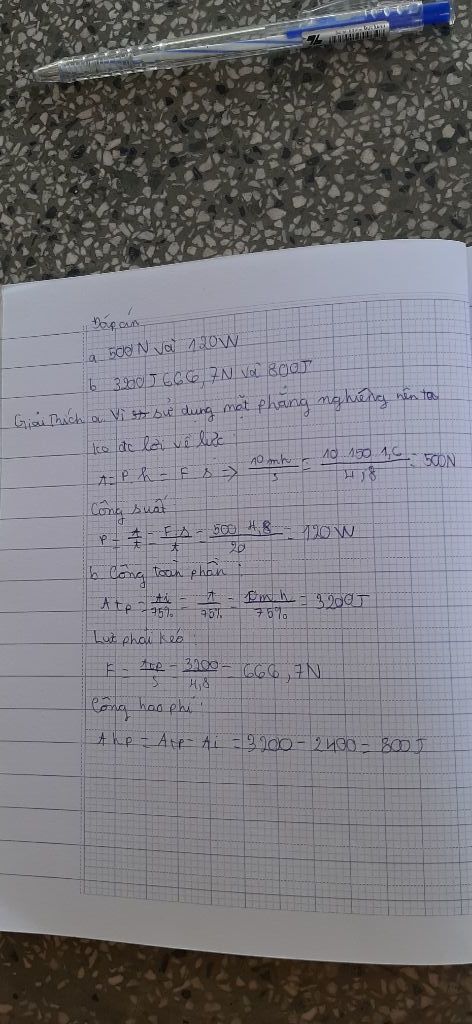 Đáp án
a 500N và 120W
b 3200J 666,7N và 800J
Giải thích a. Vì sử dụng mặt phẳng nghiêng nên ta
ko đc lời về lực:
A = P h = F s => 10mh/s = 10.150.1,6/4,8 = 500N
Công suất
P = A/t = F.s/t = 500.4,8/20 = 120W
b. Công toàn phần:
Atp = Ai/75% = A/75% = 10m.h/75% = 3200J
Lực phải kéo:
F = Atp/s = 3200/4,8 = 666,7N
Công hao phí:
Ahp = Atp - Ai = 3200 - 2400 = 800J